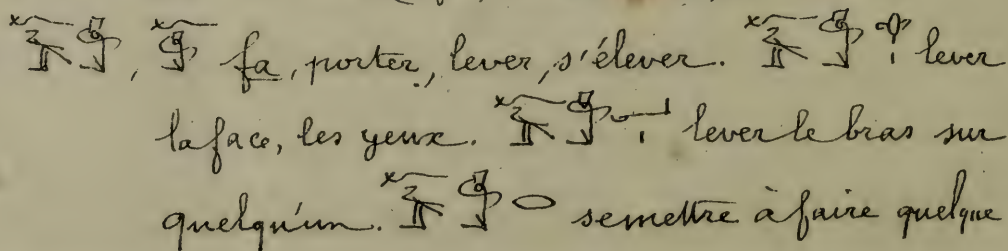 𓆑𓅯𓀋, 𓆑𓀋 fa, porter, lever, s'élever. 𓆑𓅯𓀋𓁷𓏤 lever
la face, les yeux. 𓆑𓅯𓀋𓂝𓏤 lever le bras sur
quelqu'un. 𓆑𓅯𓀋𓂋 se mettre à faire quelque